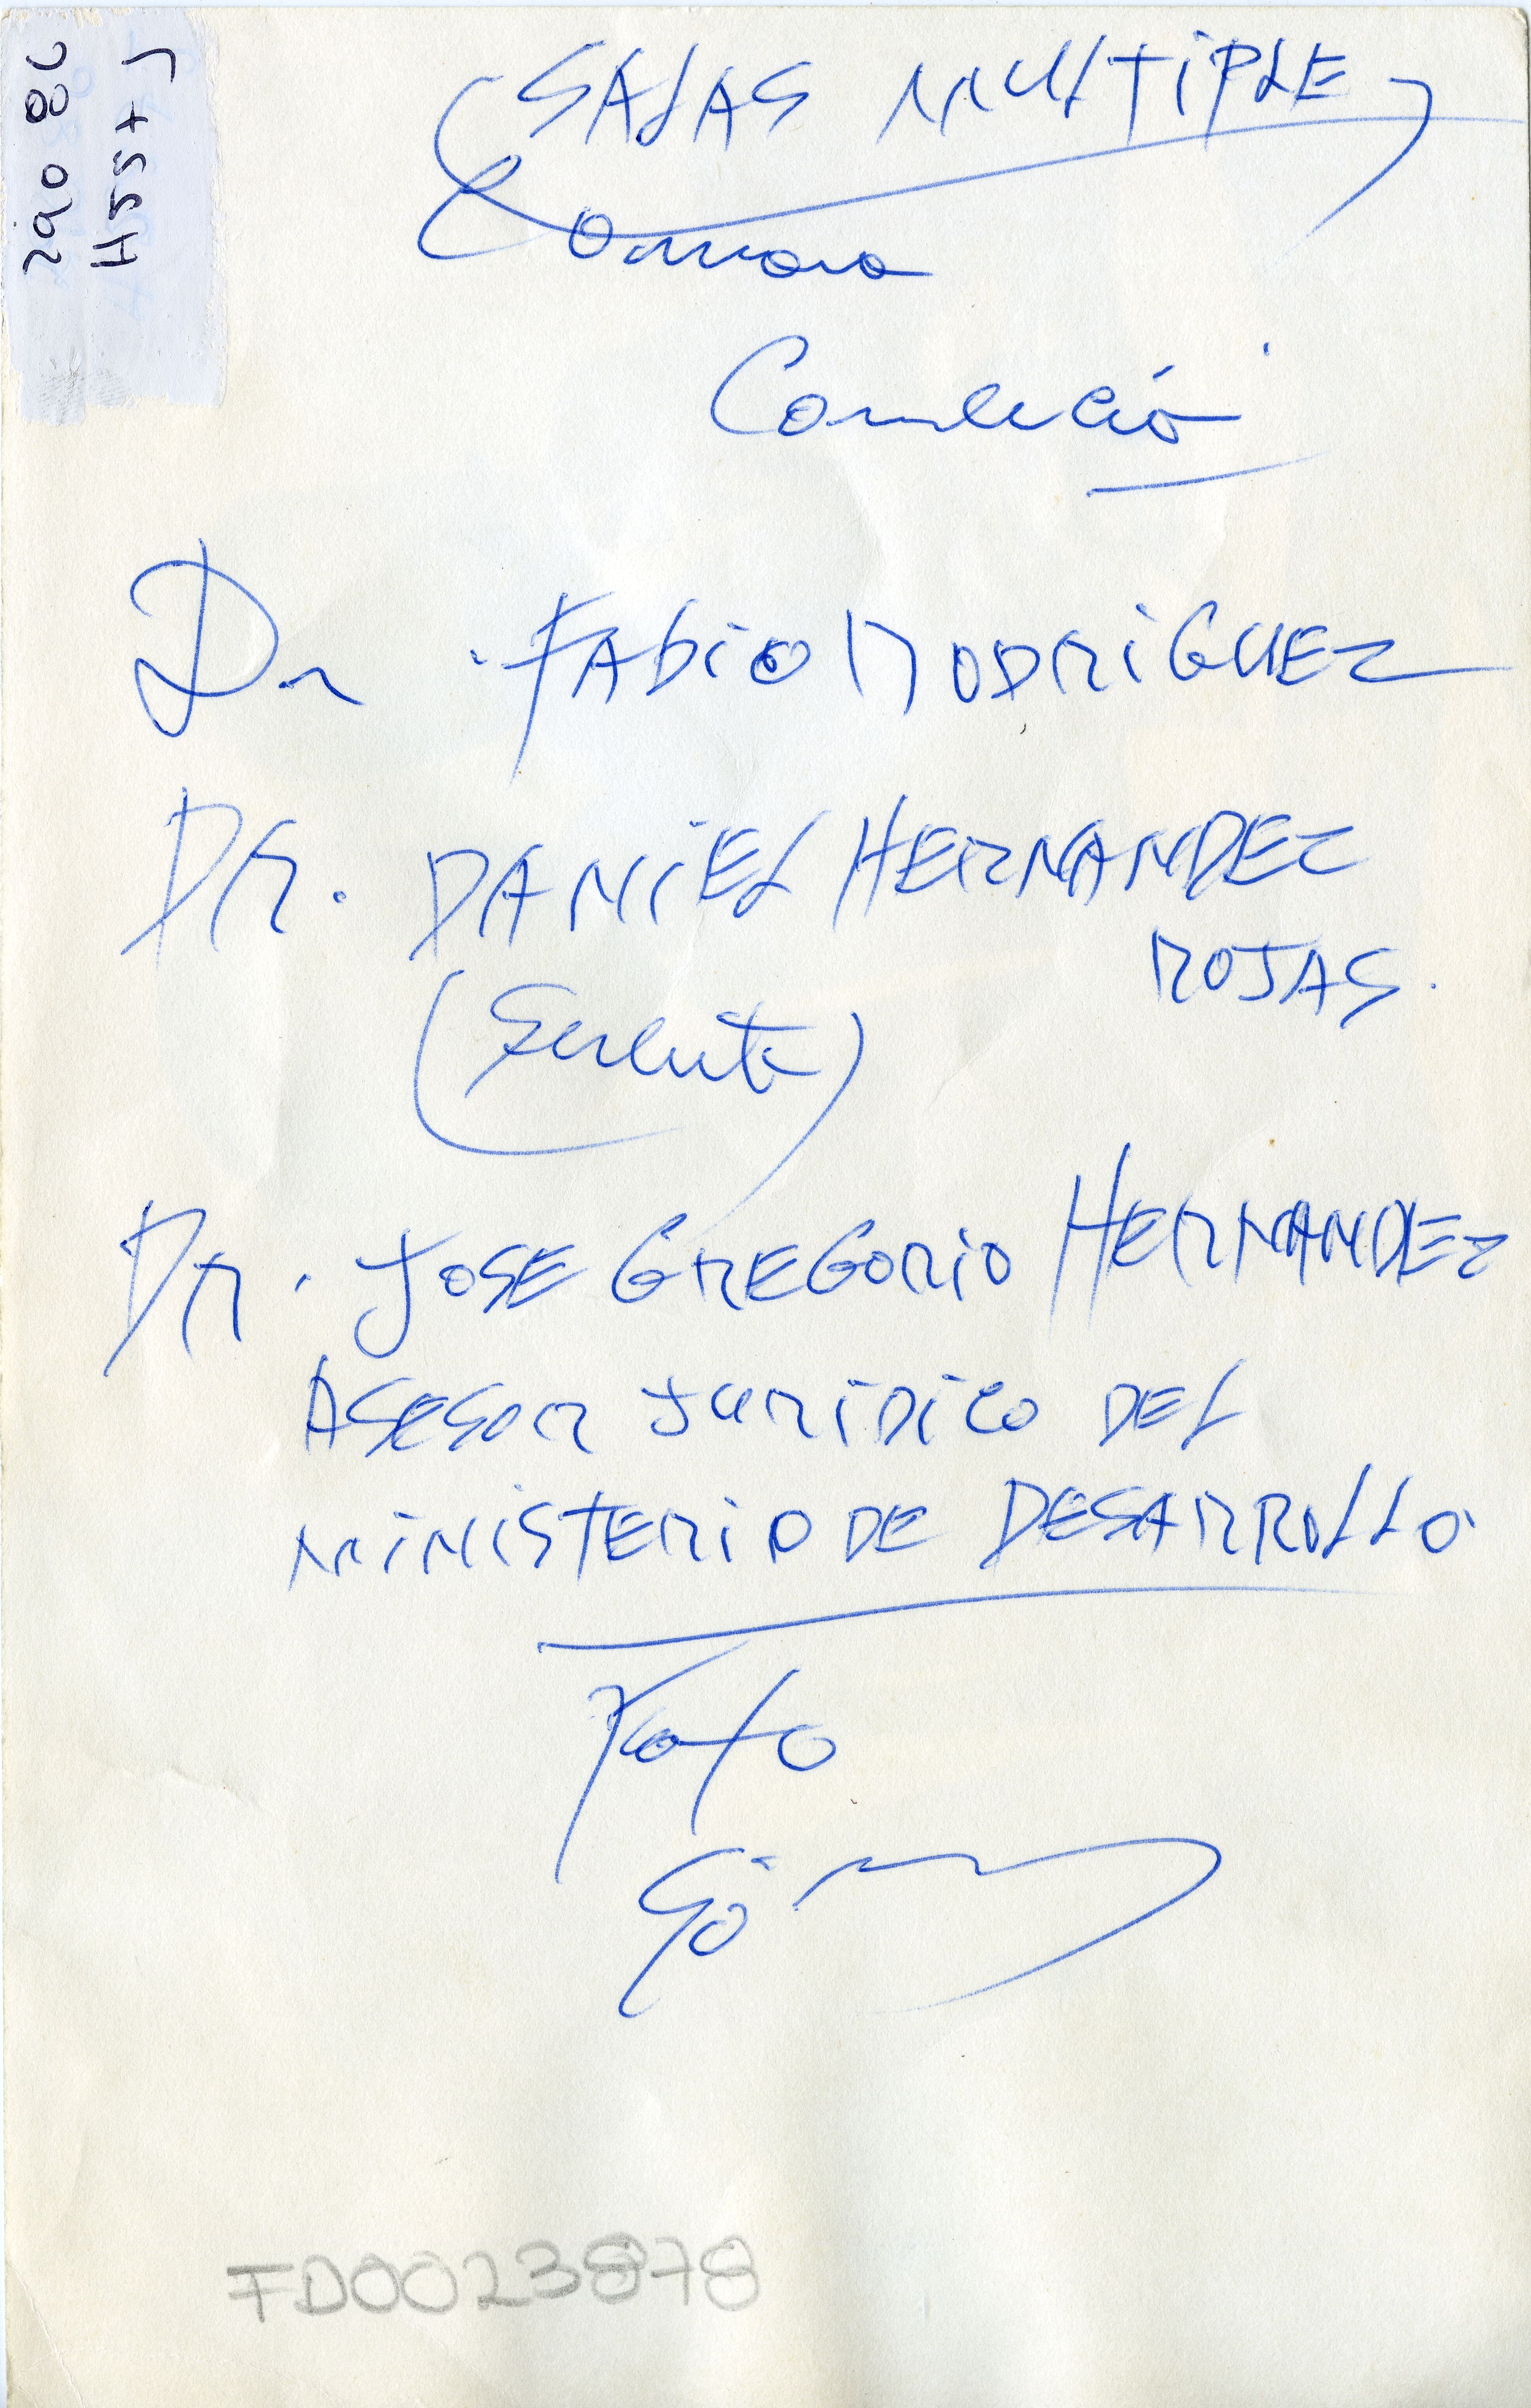 (SALAS MULTIPLE)
Camara
Comercio
Dr. FABIO RODRIGUEZ
DR. DANIEL HERNANDEZ
ROJAS.
(Gerente)
DR. JOSE GREGORIO HERNANDEZ
ASESOR JURIDICO DEL
MINISTERIO DE DESARROLLO
Foto
FD0023878